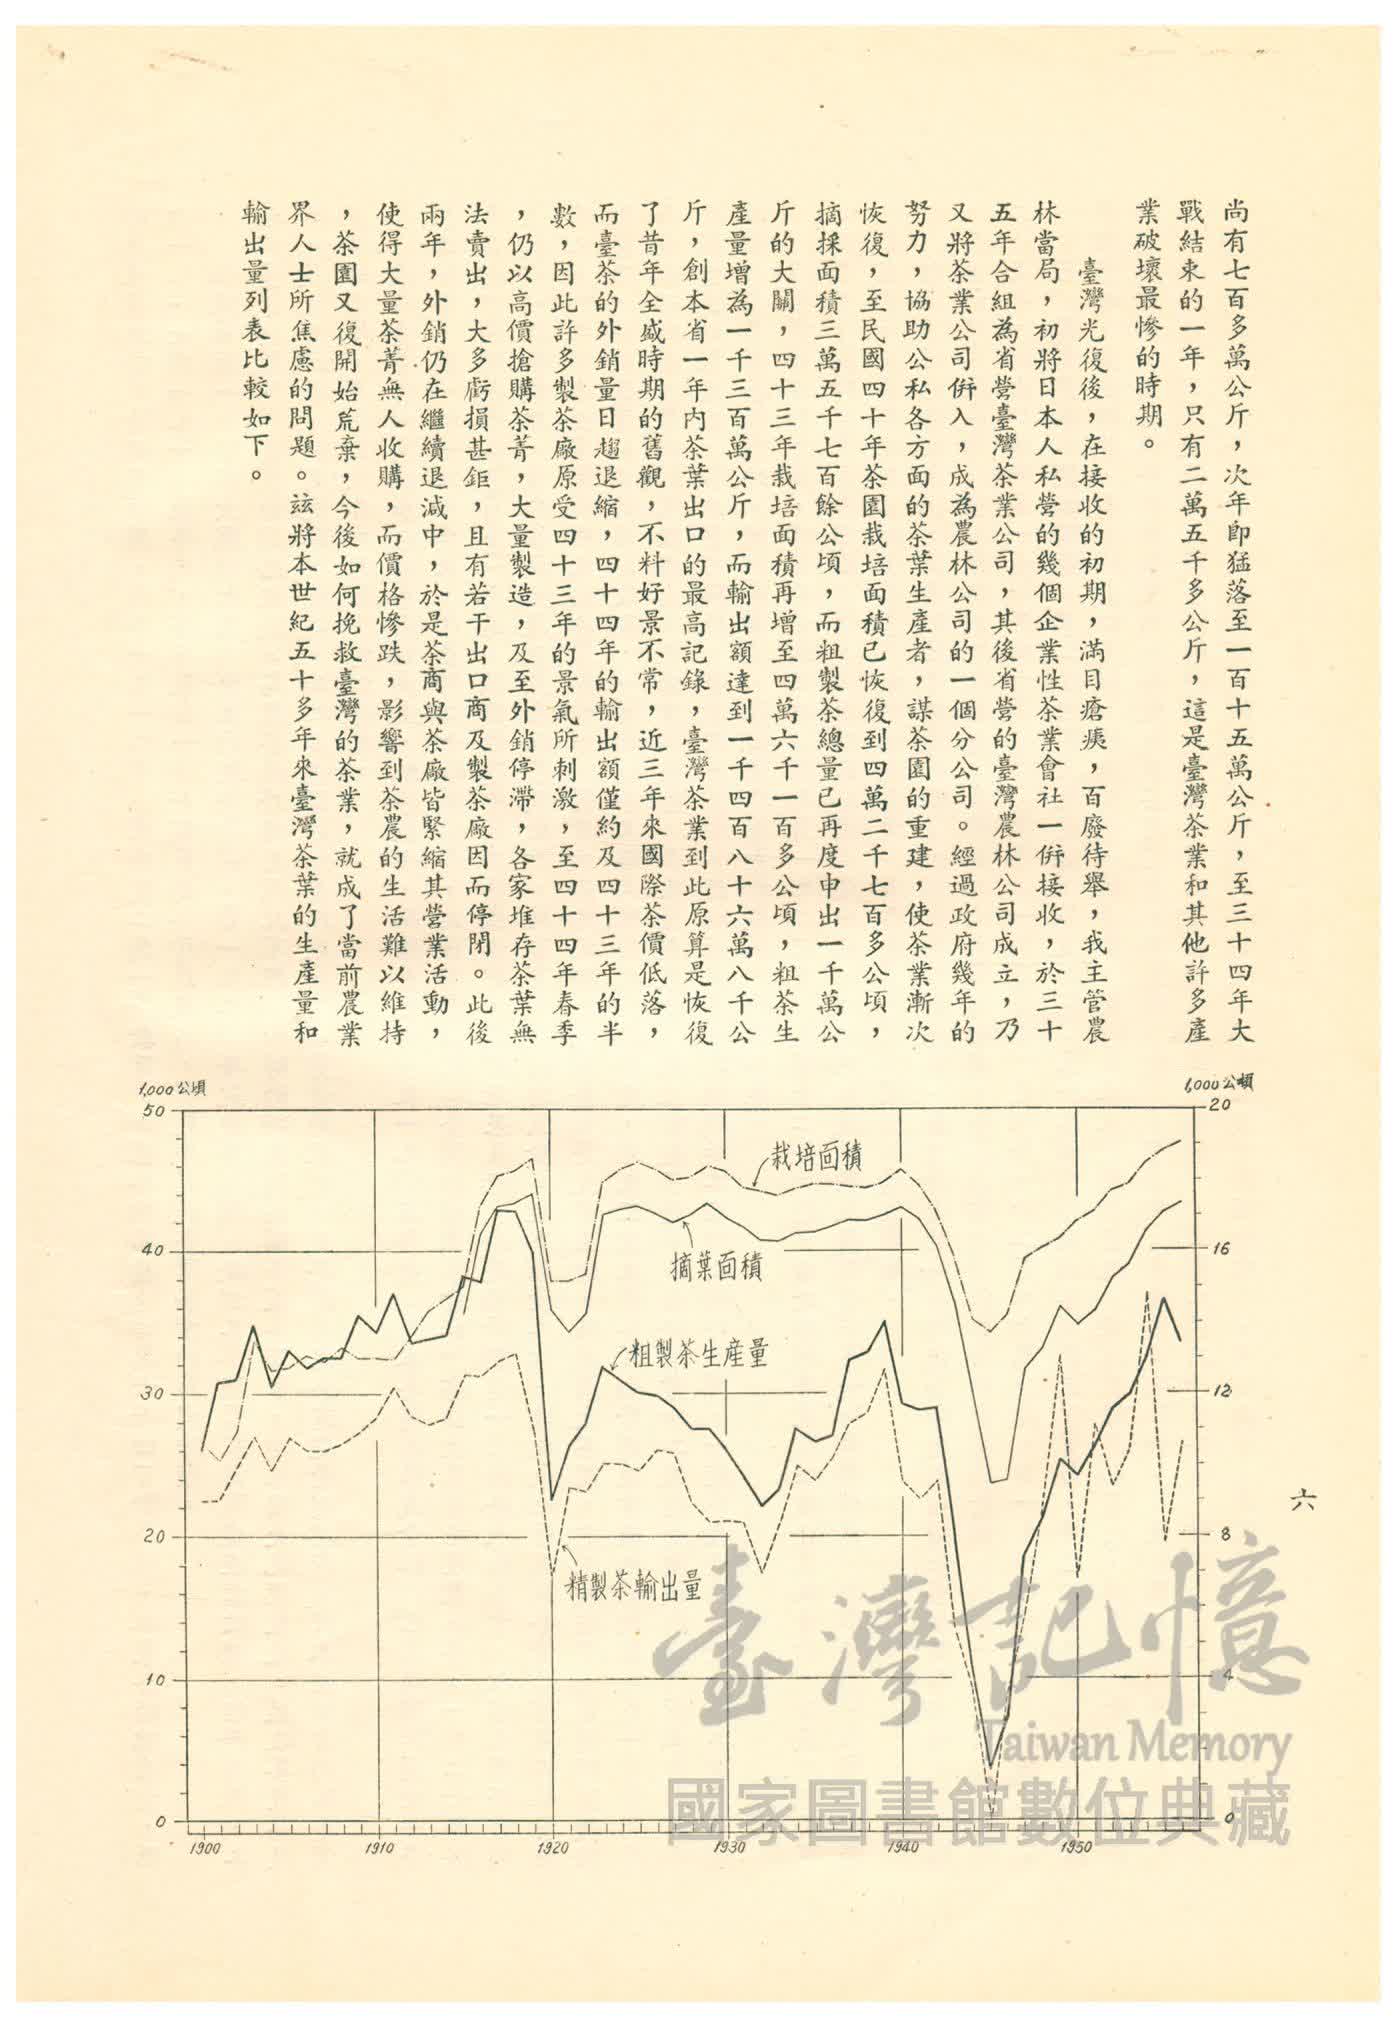 尚有七百多萬公斤，次年即猛落至一百十五萬公斤，至三十四年大
戰結束的一年，只有二萬五千多公斤，這是臺灣茶業和其他許多產
業破壞最慘的時期。
臺灣光復後，在接收的初期，滿目瘡痍，百廢待舉，我主管農
林當局，初將日本人私營的幾個企業性茶業會社一併接收，於三十
五年合組為省營臺灣茶業公司，其後省營的臺灣農林公司成立，乃
又將茶業公司併入，成為農林公司的一個分公司。經過政府幾年的
努力，協助公私各方面的茶葉生產者，謀茶園的重建，使茶業漸次
恢復，至民國四十年茶園栽培面積已恢復到四萬二千七百多公頃，
摘採面積三萬五千七百餘公頃，而粗製茶總量已再度申出一千萬公
斤的大關，四十三年栽培面積再增至四萬六千一百多公頃，粗茶生
產量增為一千三百萬公斤，而輸出額達到一千四百八十六萬八千公
斤，創本省一年內茶葉出口的最高記錄，臺灣茶業到此原算是恢復
了昔年全盛時期的舊觀，不料好景不常，近三年來國際茶價低落，
而臺茶的外銷量日趨退縮，四十四年的輸出額僅約及四十三年的半
數，因此許多製茶廠原受四十三年的景氣所刺激，至四十四年春季
，仍以高價搶購茶菁，大量製造，及至外銷停滯，各家堆存茶葉無
法賣出，大多虧損甚鉅，且有若干出口商及製茶廠因而停閉。此後
兩年，外銷仍在繼續退減中，於是茶商與茶廠皆緊縮其營業活動，
使得大量茶菁無人收購，而價格慘跌，影響到茶農的生活難以維持
，茶園又復開始荒棄，今後如何挽救臺灣的茶業，就成了當前農業
界人士所焦慮的問題。茲將本世紀五十多年來臺灣茶葉的生產量和
輸出量列表比較如下。
六
1,000公頃
1,000公頃
50
40
30
20
10
0
20
16
12
8
4
0
栽培面積
摘葉面積
粗製茶生產量
精製茶輸出量
1900
1910
1920
1930
1940
1950
臺灣記憶
Taiwan Memory
國家圖書館數位典藏